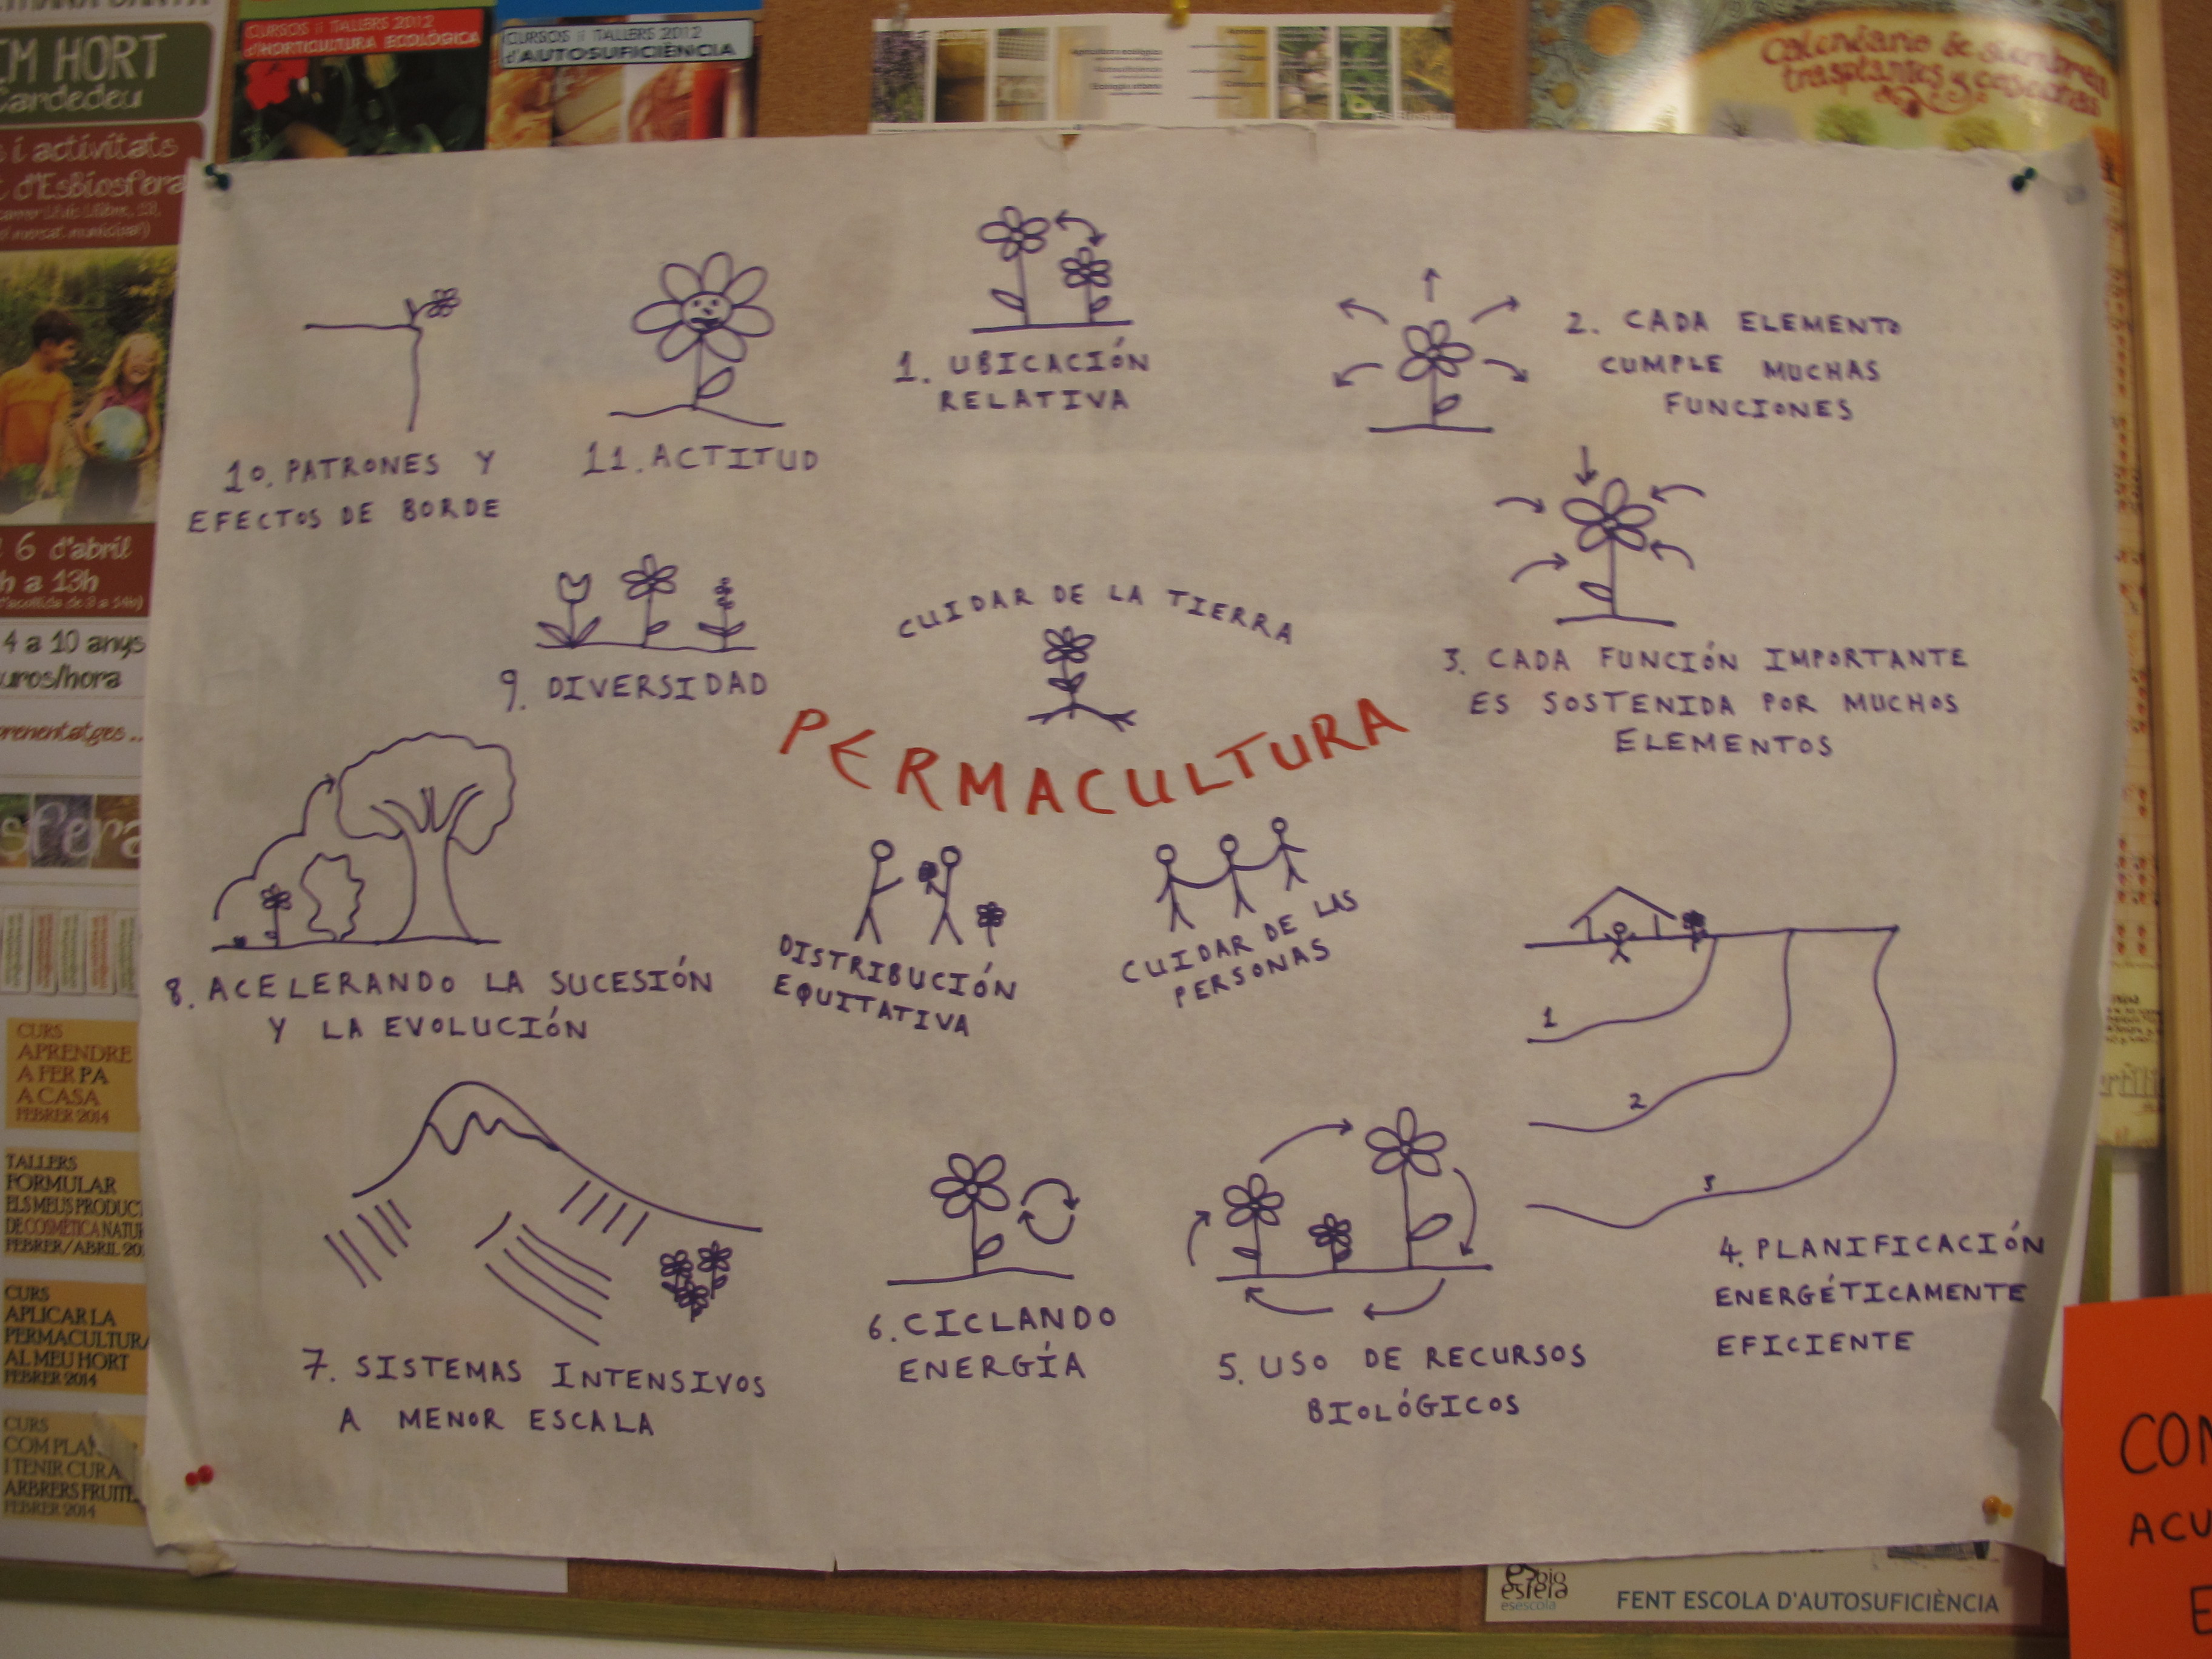 CURSOS i TALLERS 2012
d'HORTICULTURA ECOLÒGICA
CURSOS i TALLERS 2012
d'AUTOSUFICIÈNCIA
Calendario de siembra,
trasplantes y cosechas
HORT
Cardedeu
i activitats
d'Esbiosfera
6 d'abril
h a 13h
4 a 10 anys
CURS
APRENDRE
A FER PA
A CASA
FEBRER 2014
TALLERS
FORMULAR
ELS MEUS
DE COSMÈTICA
FEBRER/ABRIL
CURS
APLICAR LA
PERMACULTURA
AL MEU HORT
FEBRER 2014
CURS
COM
I TENIR CURA
ARBRES
FEBRER 2014
1. UBICACIÓN
RELATIVA
2. CADA ELEMENTO
CUMPLE MUCHAS
FUNCIONES
3. CADA FUNCIÓN IMPORTANTE
ES SOSTENIDA POR MUCHOS
ELEMENTOS
1
2
3
4. PLANIFICACIÓN
ENERGÉTICAMENTE
EFICIENTE
5. USO DE RECURSOS
BIOLÓGICOS
6. CICLANDO
ENERGÍA
7. SISTEMAS INTENSIVOS
A MENOR ESCALA
8. ACELERANDO LA SUCESIÓN
Y LA EVOLUCIÓN
9. DIVERSIDAD
10. PATRONES Y
EFECTOS DE BORDE
11. ACTITUD
CUIDAR DE LA TIERRA
PERMACULTURA
DISTRIBUCIÓN
EQUITATIVA
CUIDAR DE LAS
PERSONAS
esbio
esfera
esescola
FENT ESCOLA D'AUTOSUFICIÈNCIA